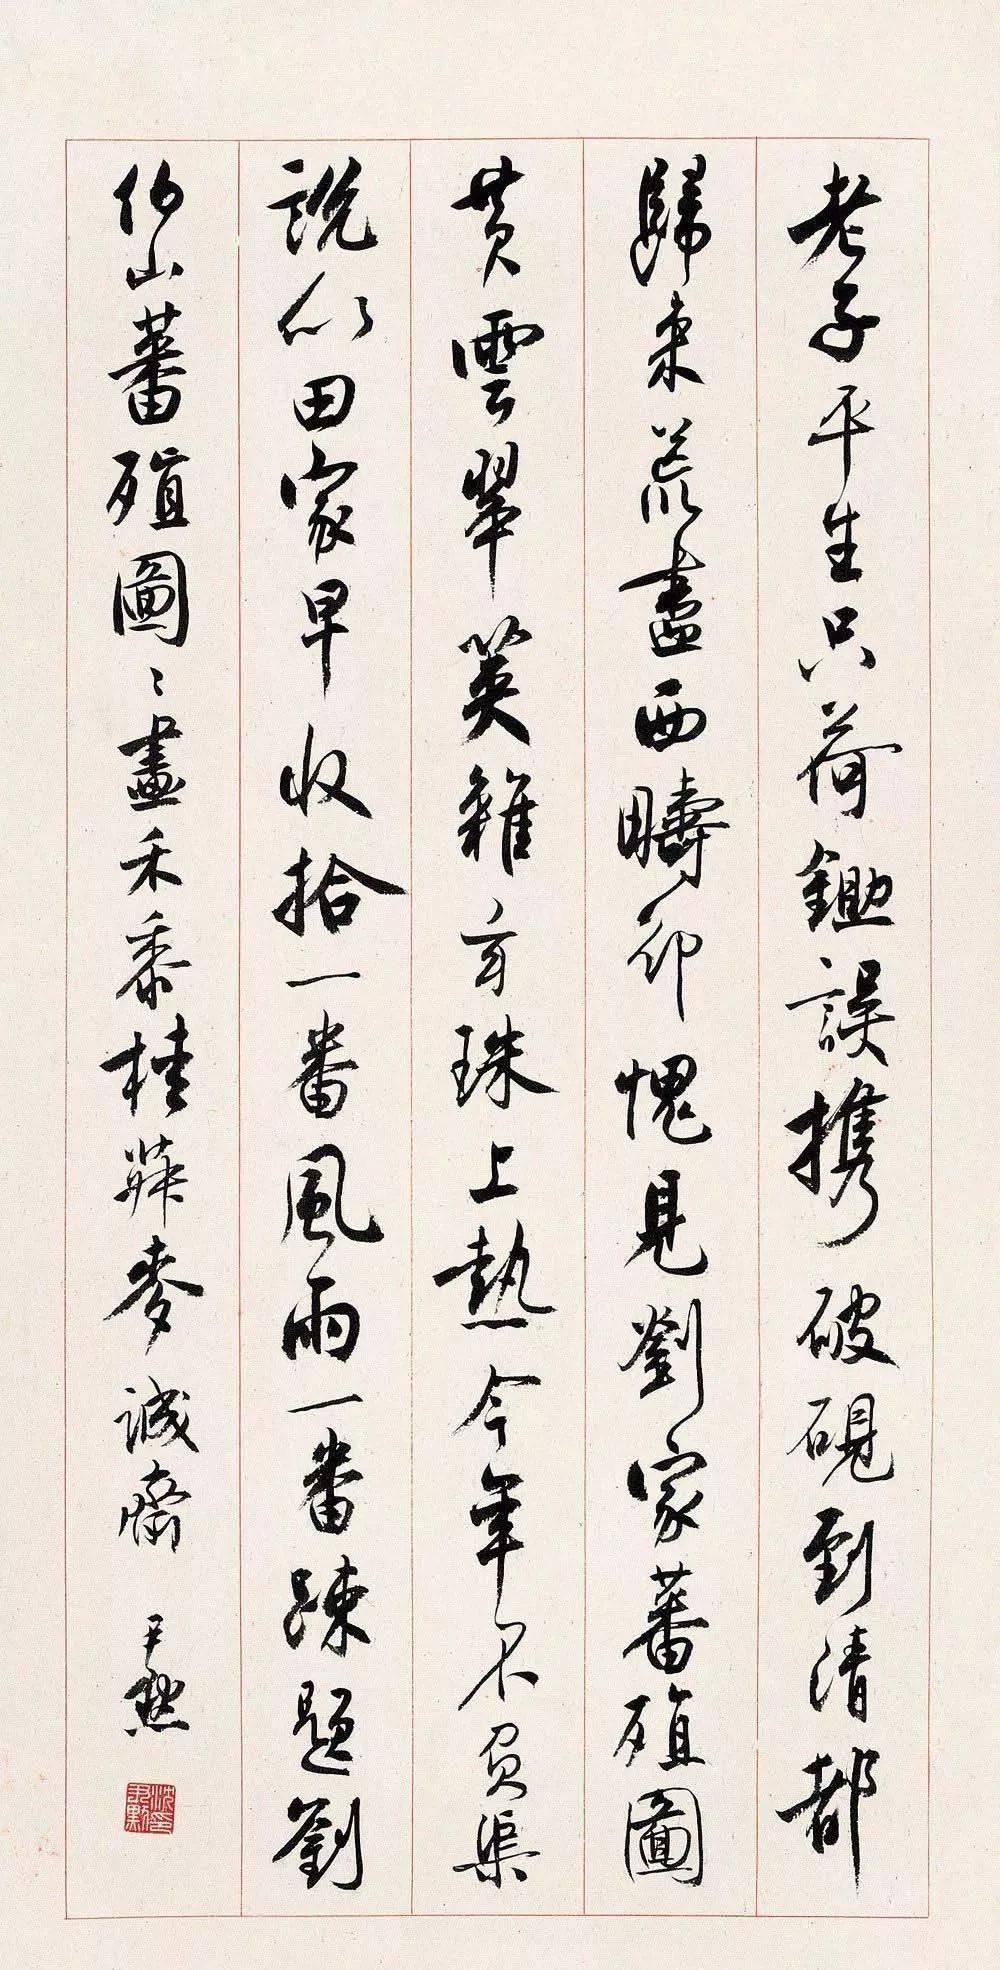 老子平生只荷鋤誤携破硯到清都
歸来荒盡西疇却愧見劉家蕃殖圖
黄雲翠莢雜玄珠上熟今年不負渠
說似田家早收拾一番風雨一番踈題劉
伯山蕃殖圖〻畫禾黍桂蔴麥誠齋 尹默
沈尹默印